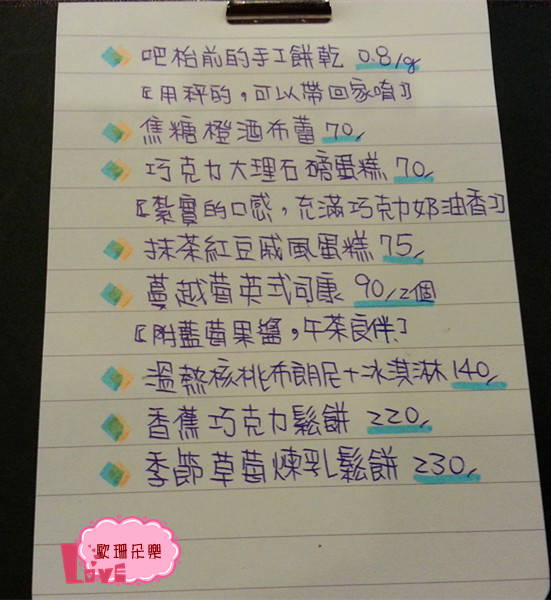 吧枱前的手工餅乾 0.8/g
〖用秤的，可以帶回家唷〗
焦糖橙酒布蕾 70/
巧克力大理石磅蛋糕 70/
〖紮實的口感，充滿巧克力奶油香〗
抹茶紅豆戚風蛋糕 75/
蔓越莓英式司康 90/2個
〖附藍莓果醬，午茶良伴〗
溫熱核桃布朗尼+冰淇淋 140/
香蕉巧克力鬆餅 220/
季節草莓煉乳鬆餅 230/
歐珊朵樂
LOVE